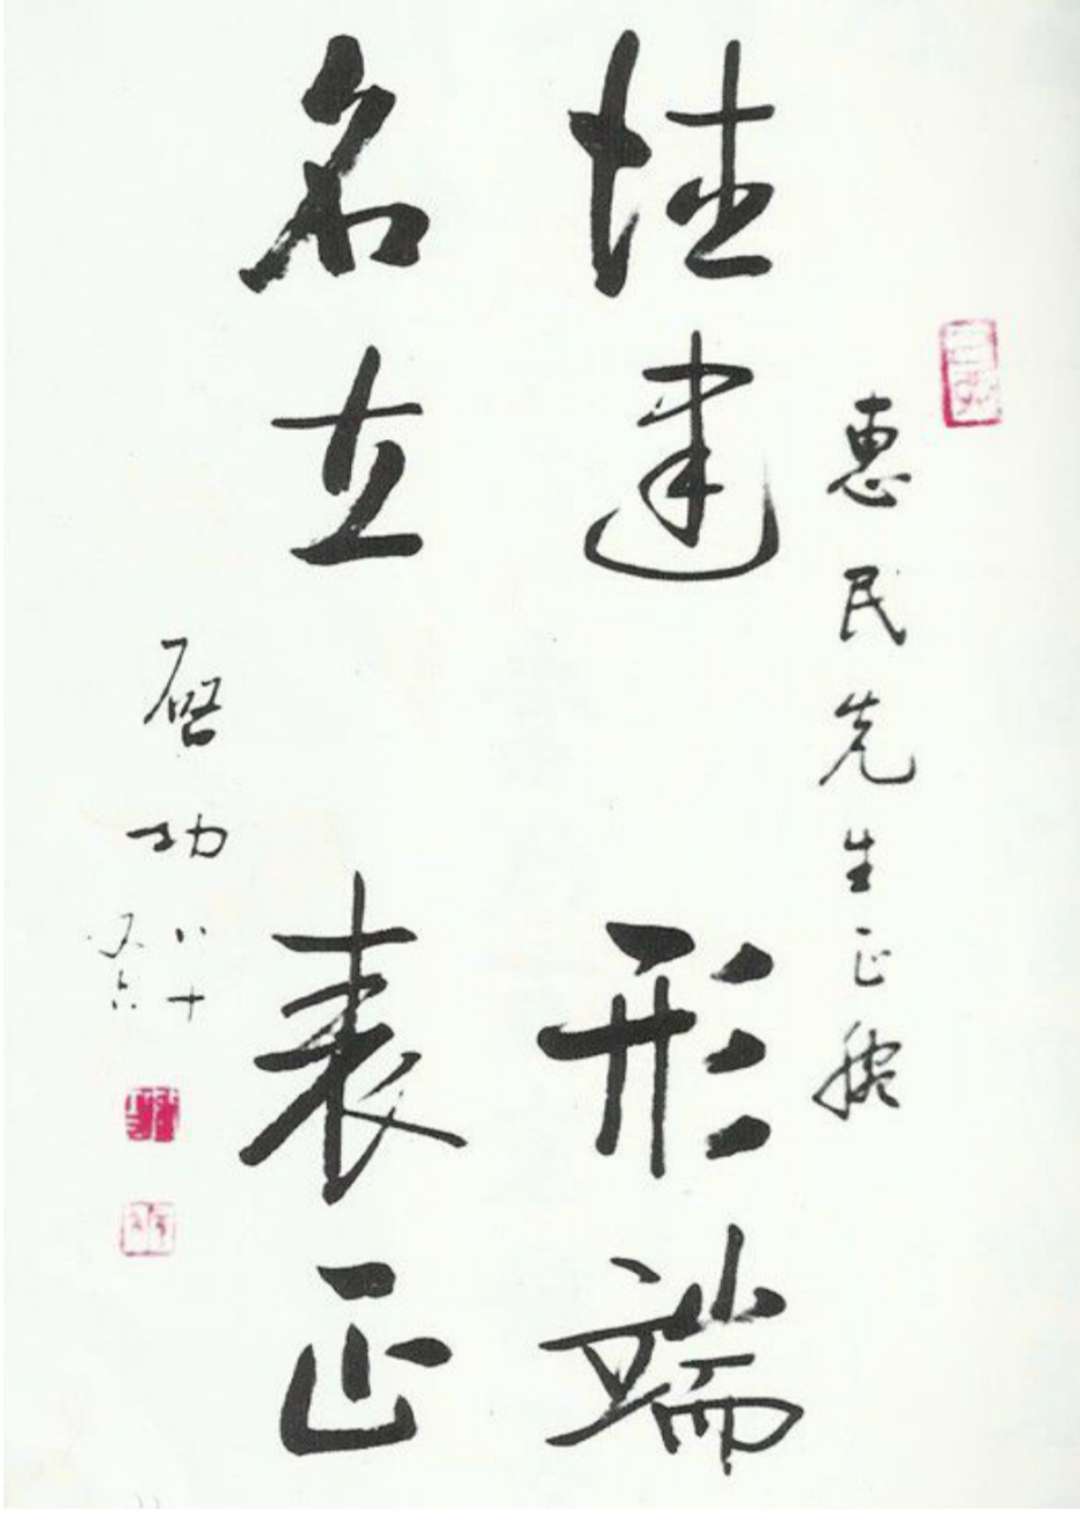 惠民先生正腕
性建形端
名立表正
启功
八十
又六